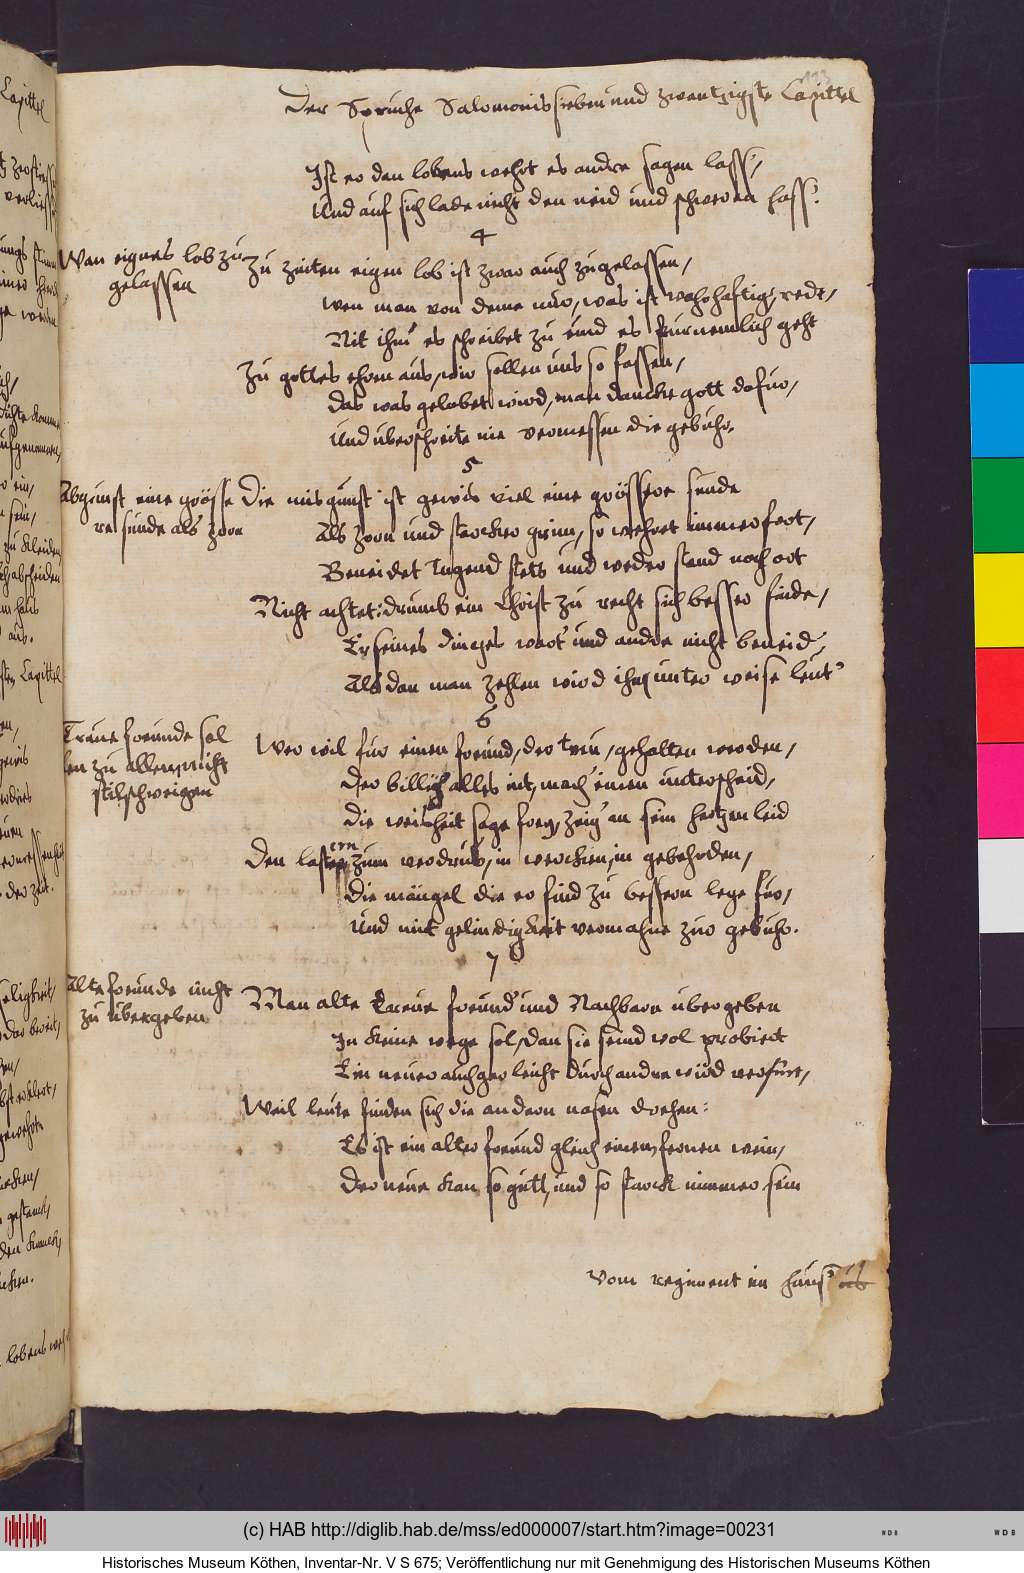 Der Spruche Salomonis sieben und zwentzigste Capittel
Ist er den lobens wehrt es andre sagen lass',
Und auf sich lade nicht den neid und schweren hass.
4
Wan eignes lob zu
gelassen
Zu zeiten eigen lob ist zwar auch zugelassen,
wen man von deme nur, was ist wahrhaftig, redt,
Mit ihm es schreibet zu und es furnemlich geht
Zu gottes ehren aus, wir sollen uns so fassen,
Das was gelobet wird, man dancke gott dafur,
Und uberschreite nie vermessen die gebuhr.
5
Abgunst eine grösse
re sunde als zorn
Die misgunst ist gewis viel eine grössere sunde
Als zorn und starcker grim, so wehret immerfort,
Beneidet Tugend stets und weder stand noch ort
Nicht achtet: drumb ein Christ zu recht sich besser finde,
Er seines dinges wart' und andre nicht beneid',
Als dan man zehlen wird ihn unter weise leut'
6
Treue freunde sol
len zu allem nicht
stilschweigen
Wer wil fur einen freund, der treu, gehalten werden,
Der billich alles mit, mach' einen unterscheid,
Die weisheit sage frey, zeig' an sein hertzen leid
Den lastern zum verdrus, in wercken, in geberden,
Die mängel die er find zu bessern lege fur,
Und mit gelindigkeit vermahne zur gebuhr.
7
Alte freunde nicht
zu ubergeben
Man alte Treue freund' und Nachbarn ubergeben
In keine wege sol, dan sie seind wol probirt
Ein neuer auch gar leicht durch andre wird verfürt,
Weil leute finden sich die andern nasen drehen:
Es ist ein alter freund gleich einem fernen wein,
Der neue kan so gutt, und so starck nimmer sein
Vom regiment im haus'
(c) HAB http://diglib.hab.de/mss/ed000007/start.htm?image=00231
Historisches Museum Köthen, Inventar-Nr. V S 675; Veröffentlichung nur mit Genehmigung des Historischen Museums Köthen